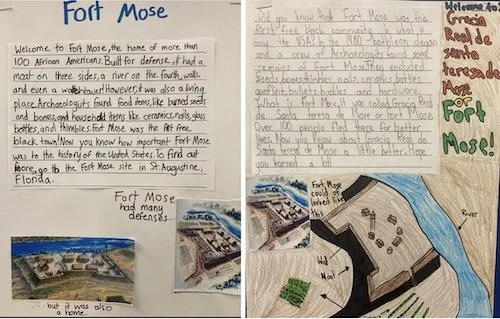 Fort Mose
Welcome to Fort Mose, the home of more than
100 African Americans. Built for defense, it had a
moat on three sides, a river on the fourth, walls,
and even a watchtower! However, it was also a living
place. Archaeologists found food items, like burned seeds
and bones, and household items like ceramics, nails, glass
bottles, and thimbles. Fort Mose was the first free
black town! Now you know how important Fort Mose
was to the history of the United States. To find out
more, go to the Fort Mose site in St. Augustine,
Florida.
Fort Mose
had many
defenses...
...but it was also
a home.
Welcome to
Gracia
Real de
santa
teresa de
Mose
or
Fort
Mose!
Did you know that Fort Mose was the
first free black community in what is
now the USA? In the 1980 kathleen deagan
and a crew of Archaeologists found some
remains of Fort Mose. They included
seeds, bones, thimbles, nails, ceramics, bottles,
gunflint, bullets, buckles and hardware.
What is Fort Mose, it was called Gracia Real
de Santa teresa de Mose or Fort Mose
Over 100 people fled there for better
lives. Now you know about Gracia Real de
Santa teresa de Mose a little better. Hope
you learned a lot!
Fort Mose
could of
looked like
this
River
Wall
Moat